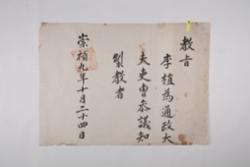 教旨
李植爲通政大
夫吏曹參議知
製敎者
崇禎九年十月二十四日